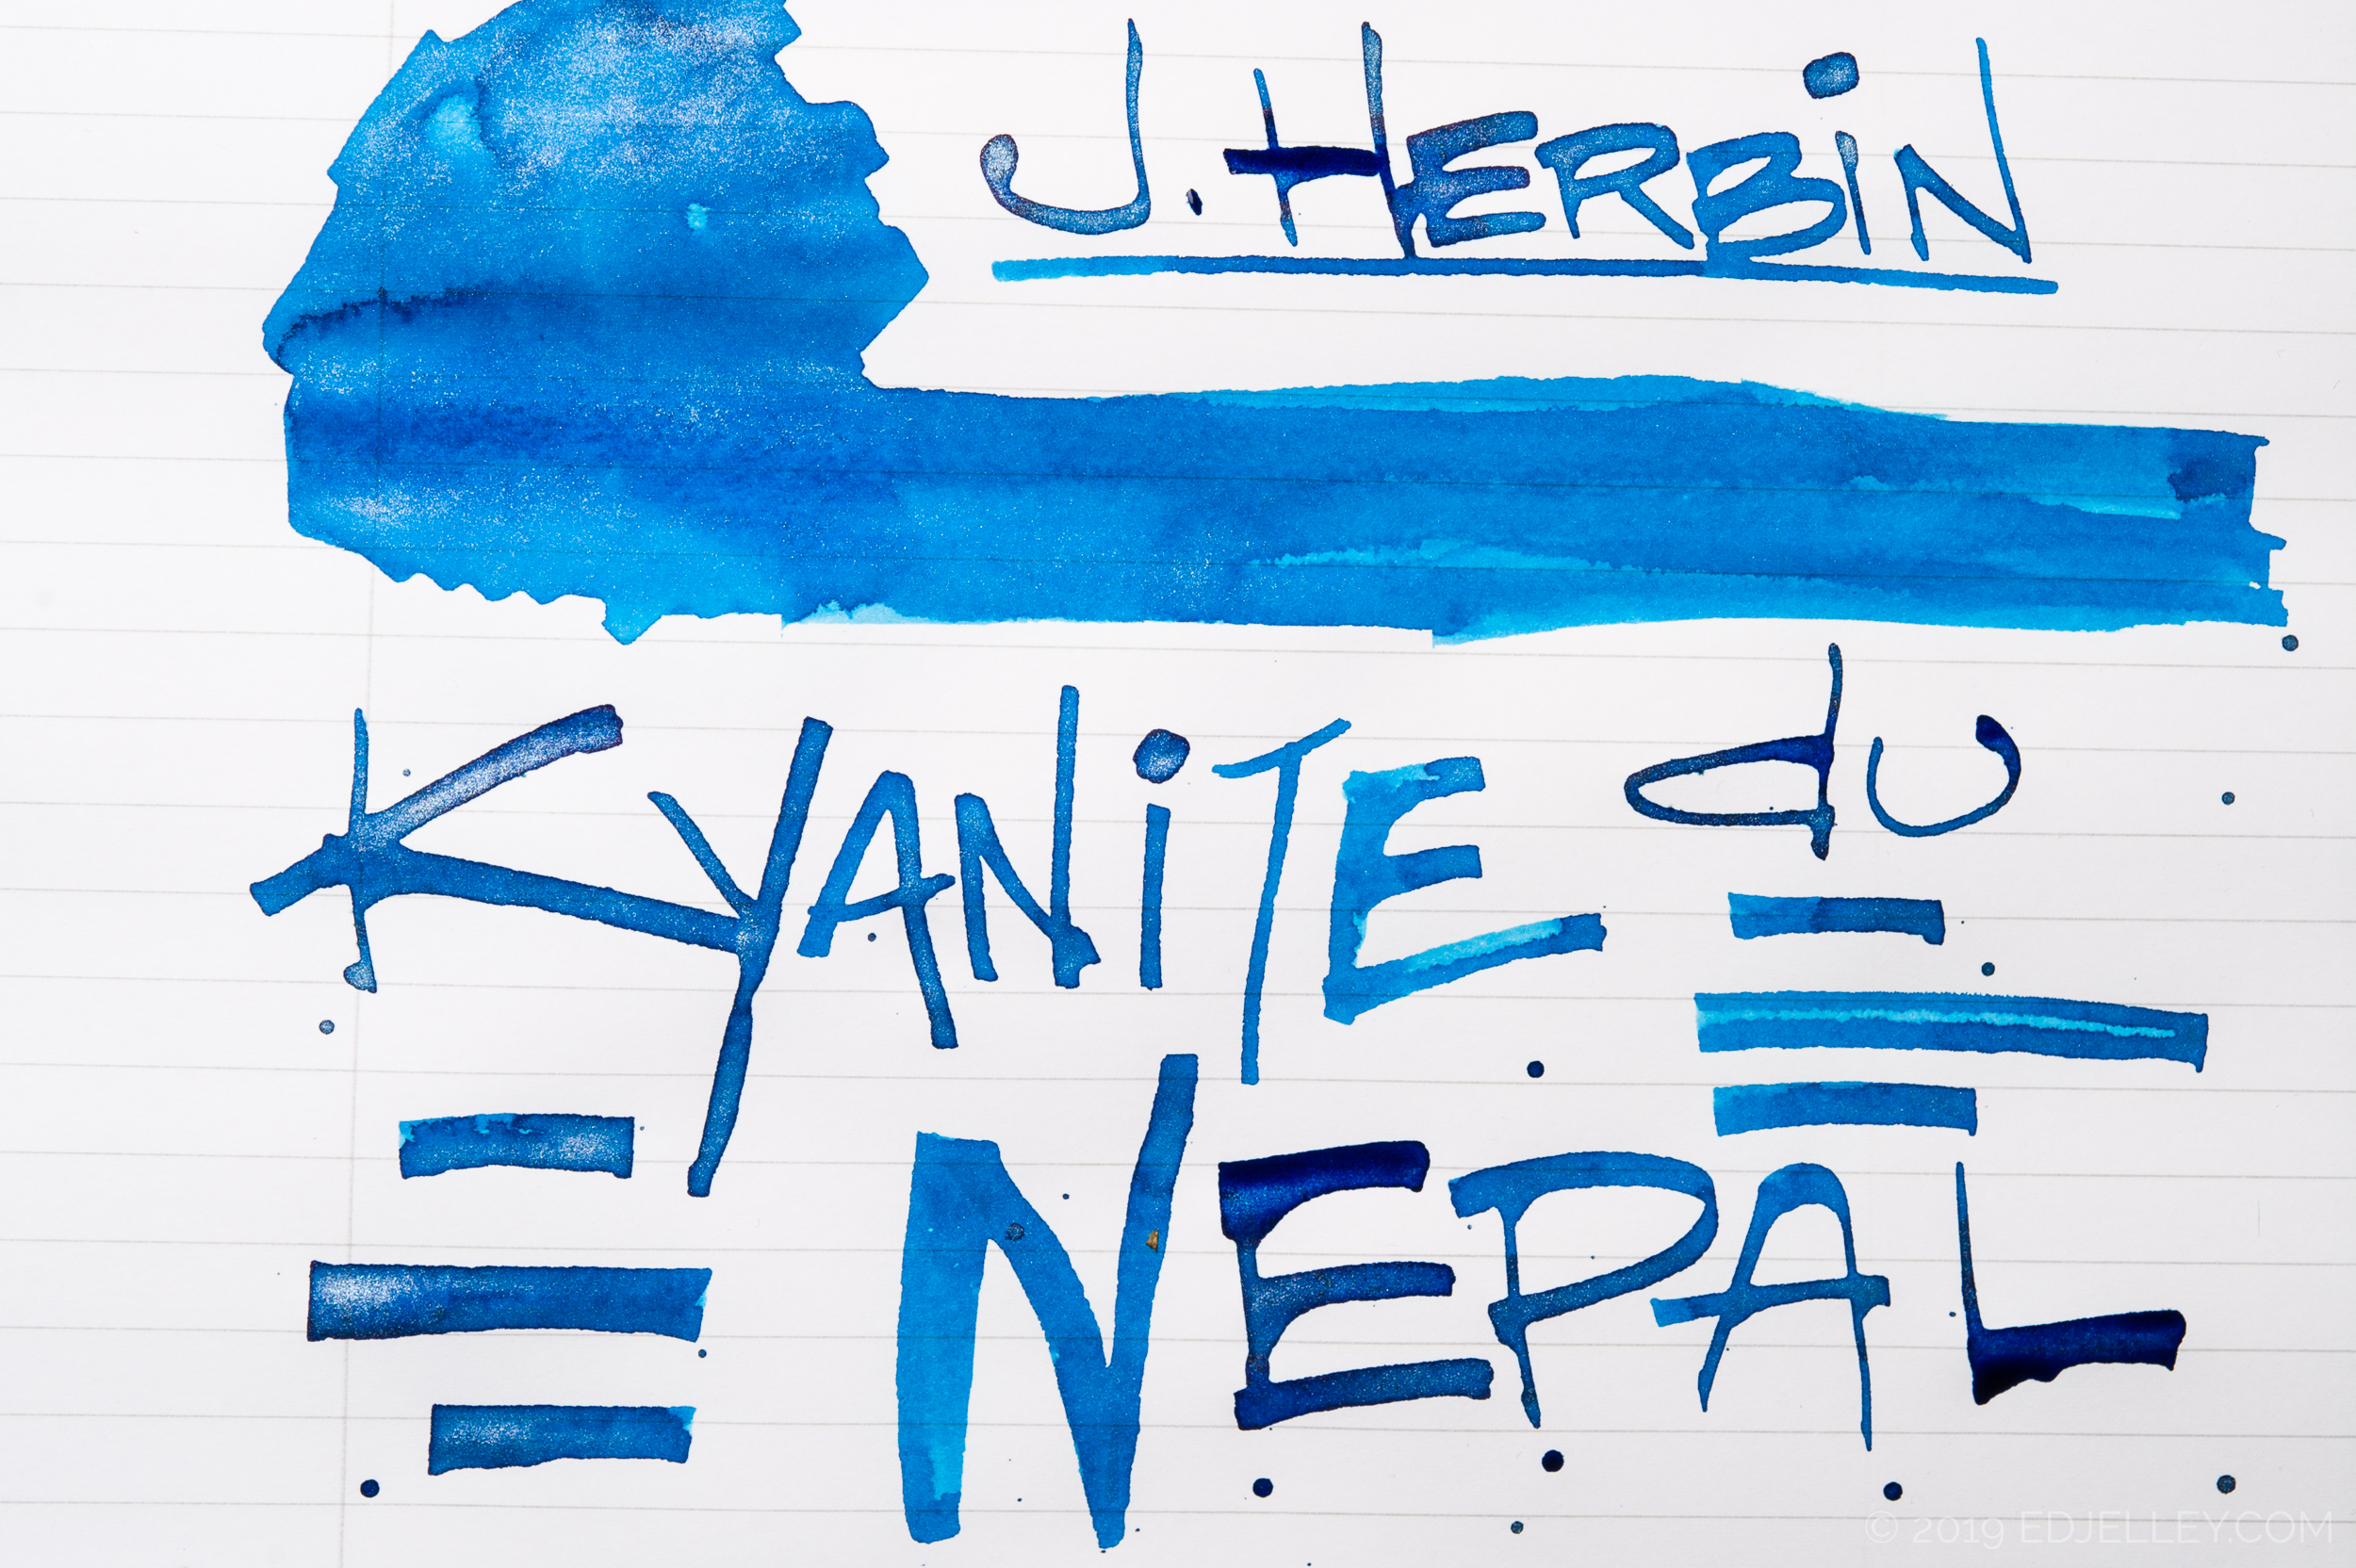 J. HERBiN
KYANiTE du
NEPAL
© 2019 EDJELLEY.COM